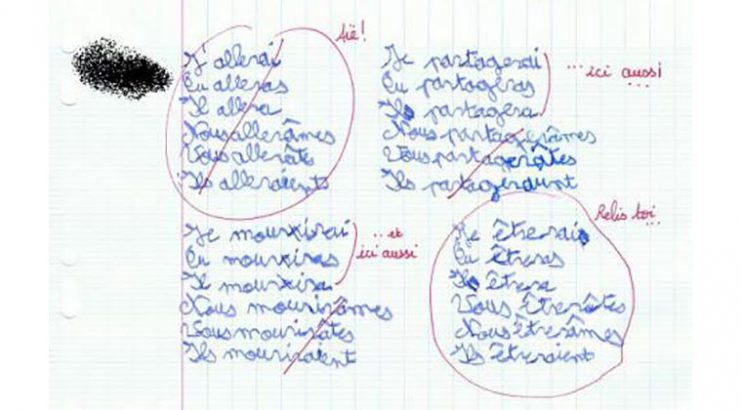 Aïe!
J'allerai
Tu alleras
Il allera
Nous allerâmes
Vous allerâtes
Ils alleraients
Je partagerai
Tu partageras
Il partagera
Nous partagerâmes
Vous partagerâtes
Ils partagerdunt
...ici aussi...
Je mourrirai
Tu mourriras
Il mourrira
Nous mourirâmes
Vous mourirates
Ils mouriraient
...et ici aussi
Relis toi...
Je êtrerai
Tu êtreras
Il êtrera
Vous êtrerâtes
Nous êtrerâmes
Ils êtreraient